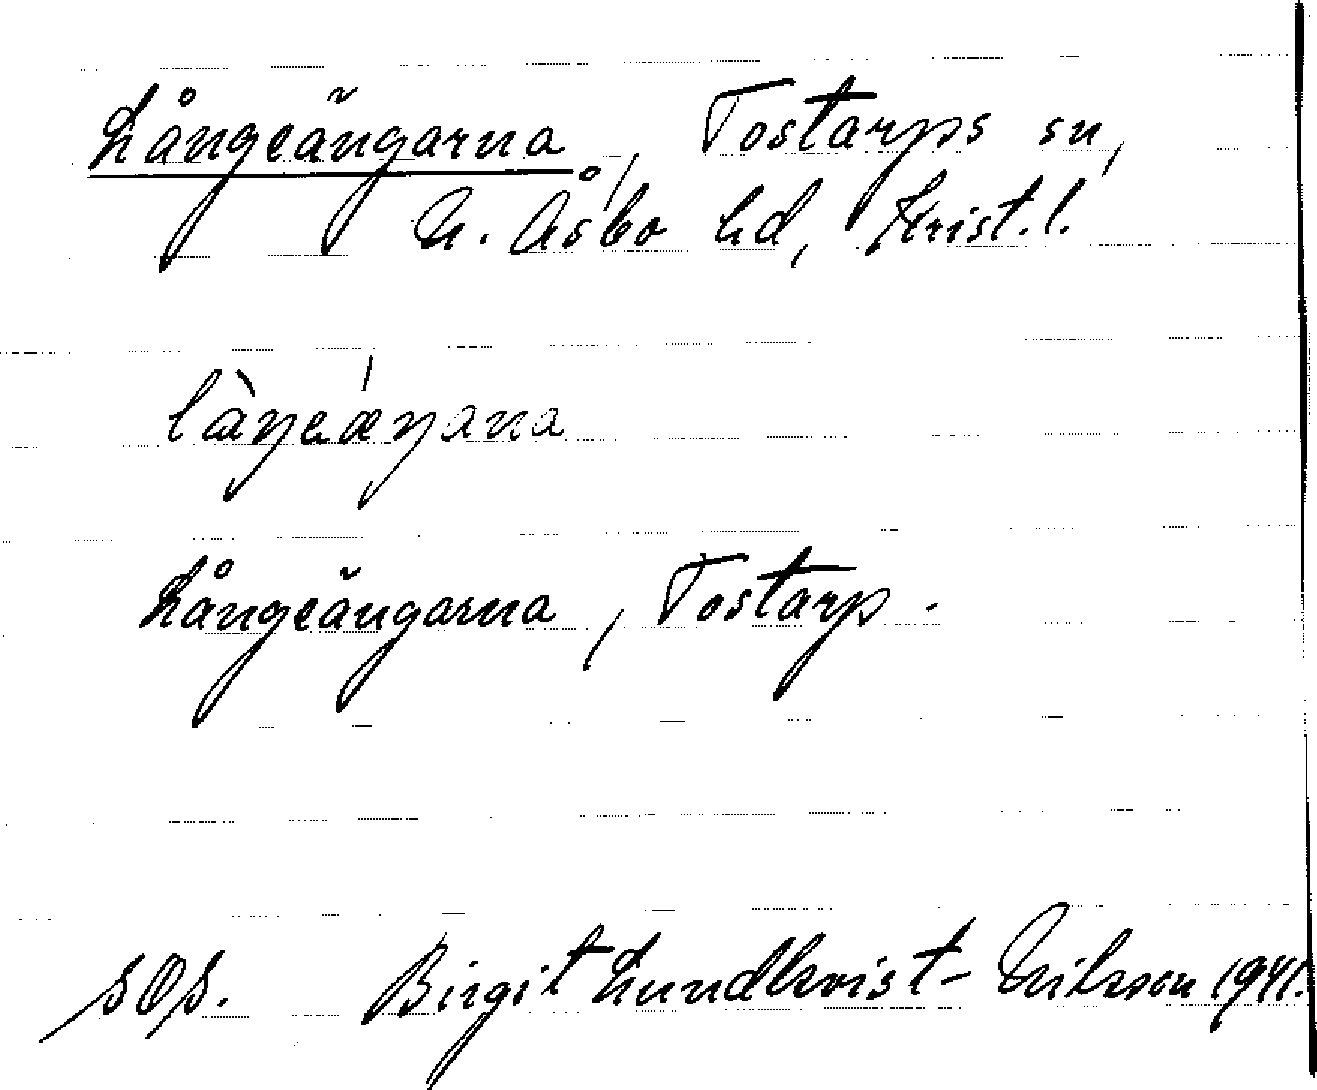 Långeängarna, Tostarps sn,
N. Åsbo hd, Krist. l.
làŋeáŋana
Långeängarna, Tostarp.
Birgit Lundkvist-Nilsson 1941.